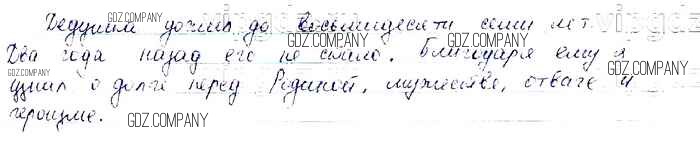 Дедушка дожил до восьмидесяти семи лет.
Два года назад его не стало. Благодаря ему я
узнал о долге перед Родиной, мужестве, отваге и
героизме.
GDZ.COMPANY
GDZ.COMPANY
GDZ.COMPANY
GDZ.COMPANY
GDZ.COMPANY
GDZ.COMPANY